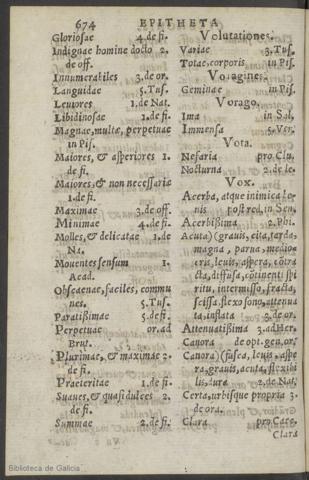 674 EPITHETA
Gloriosae 4.de fi.
Indignae homine docto 2.
de off.
Innumerabiles 3.de or.
Languidae 5.Tus.
Leuiores 1.de Nat.
Libidinosae 1.de fi.
Magnae, multae, perpetuae
in Pis.
Maiores, & asperiores 1.
de fi.
Maiores, & non necessariae
1.de fi.
Maximae 3.de off.
Minimae 4.de fi.
Molles, & delicatae 1.de
Na.
Mouentes sensum 1.
Acad.
Obscaenae, faciles, commu
nes. 5.Tus.
Paratissimae 5.de fi.
Perpetuae or.ad
Brut.
Plurimae, & maximae 2.
de fi.
Praeteritae 1.de fi.
Suaues, & quasi dulces 2.
de fi.
Summae 2.de fi.
Volutationes.
Variae 3.Tus.
Totae, corporis in Pis.
Voragines.
Geminae in Pis.
Vorago.
Ima in Sal.
Immensa 5.Ver.
Vota.
Nefaria pro Clu.
Nocturna 2.de le.
Vox.
Acerba, atque inimica be-
nis post red.in Sen.
Acerbissima 2.Phi.
Acuta) grauis, cita, tarda,
magna, parua, medio-
cris, leuis, aspera, cõtra
cta, diffusa, cõtinenti spi
ritu, intermisso, fracta,
scissa. flexo sono, attenua
ta, inflata 3.de or.
Attenuatissima 3.adHer.
Canora de opt.gen.or.
Canora) (fusca, leuis, aspe
ra, grauis, acuta, flexibi
lis, dura 2.de Nat.
Certa, urbisque propria 3.
de ora.
Clara pro Caec.
Clara
Biblioteca de Galicia